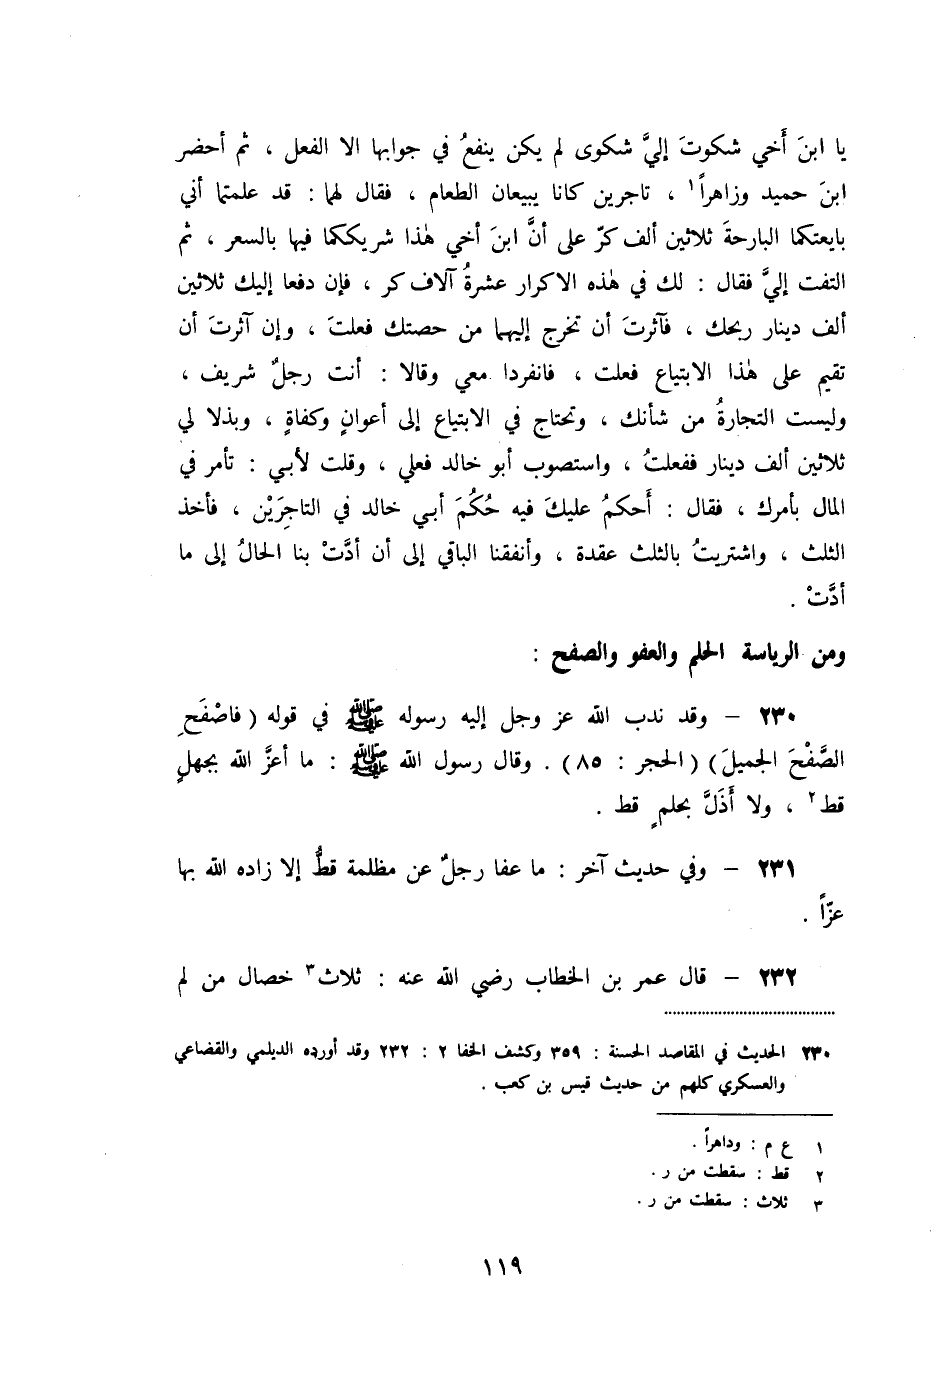 يا ابنَ أَخي شكوتَ إليَّ شكوى لم يكن ينفعُ في جوابها الا الفعل ، ثم أحضر
ابنَ حميد وزاهراً١ ، تاجرين كانا يبيعان الطعام ، فقال لهما : قد علمتما أني
بايعتكما البارحةَ ثلاثين ألف كرّ على أنَّ ابنَ أخي هٰذا شريككما فيها بالسعر ، ثم
التفت إليَّ فقال : لك في هٰذه الاكرار عشرةُ آلاف كر ، فإن دفعا إليك ثلاثين
ألف دينار ربحك ، فآثرتَ أن تخرج إليهما من حصتك فعلتَ ، وإن آثرتَ أن
تقيم على هٰذا الابتياع فعلت ، فانفردا معي وقالا : أنت رجلٌ شريف ،
وليست التجارةُ من شأنك ، وتحتاج في الابتياع إلى أعوانٍ وكفاةٍ ، وبذلا لي
ثلاثين ألف دينار ففعلتُ ، واستصوب أبو خالد فعلي ، وقلت لأبي : تأمر في
المال بأمرك ، فقال : أَحكمُ عليكَ فيه حُكُمَ أبي خالد في التاجرَيْن ، فأخذ
الثلث ، واشتريتُ بالثلث عقدة ، وأنفقنا الباقي إلى أن أدَّتْ بنا الحالُ إلى ما
أدَّتْ .
ومن الرياسة الحلم والعفو والصفح :
٢٣٠ – وقد ندب الله عز وجل إليه رسوله ﷺ في قوله ( فاصْفَحِ
الصَّفْحَ الجميلَ ) ( الحجر : ٨٥ ) . وقال رسول الله ﷺ : ما أعزَّ الله بجهلٍ
قط٢ ، ولا أَذَلَّ بحلمٍ قط .
٢٣١ – وفي حديث آخر : ما عفا رجلٌ عن مظلمة قطُّ إلا زاده الله بها
عزّاً .
٢٣٢ – قال عمر بن الخطاب رضي الله عنه : ثلاث٣ خصال من لم
٢٣٠ الحديث في المقاصد الحسنة : ٣٥٩ وكشف الخفا ٢ : ٢٣٢ وقد أورده الديلمي والقضاعي
والعسكري كلهم من حديث قيس بن كعب .
١ ع م : وداهراً .
٢ قط : سقطت من ر .
٣ ثلاث : سقطت من ر .
١١٩